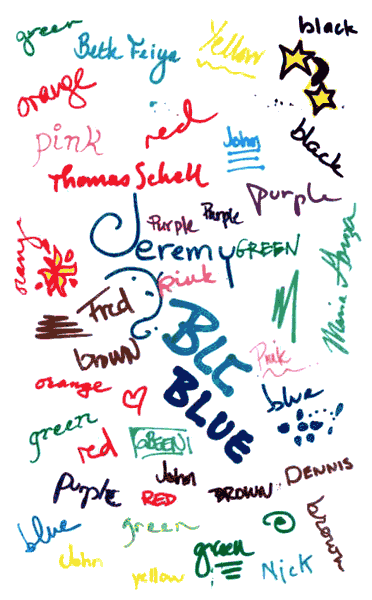 green
Beth Feiya
Yellow
black
orange
red
pink
John
black
Thomas Schell
purple
Purple
Purple
Jeremy
GREEN
orange
pink
Maria Gonza
Fred
BLE
brown
Pink
BLUE
orange
blue
green
red
GREEN
John
DENNIS
Purple
RED
BROWN
blue
green
brown
John
green
yellow
Nick